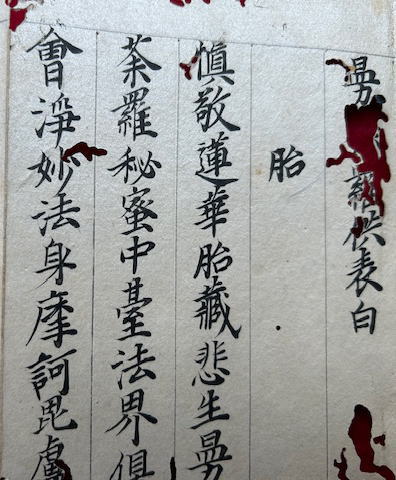 曼羅供表白
胎
慎敬蓮華胎藏悲生曼
荼羅秘蜜中臺法界俱
會淨妙法身摩訶毘盧